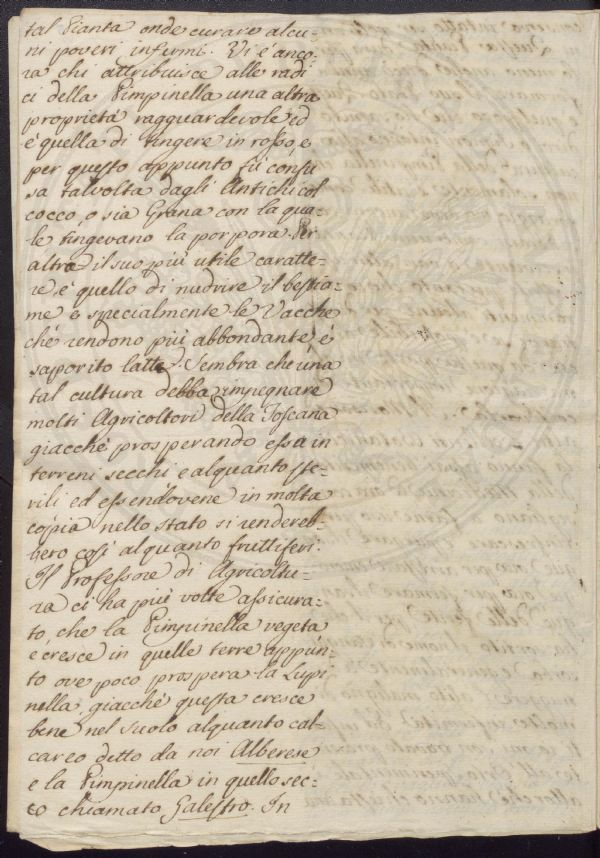 tal Pianta onde curare alcu-
ni poveri infermi. Vi è anco-
ra chi attribuisce alle radi-
ci della Pimpinella una altra
proprietà ragguardevole ed
è quella di tingere in rosso, e
per questo appunto fù confu-
sa talvolta dagli Antichi col
cocco, o sia Grana con la qua-
le tingevano la porpora. Per
altro il suo più utile caratte-
re, è quello di nudrire il bestia-
me e specialmente le Vacche
chè rendono più abbondante è
saporito latte. Sembra che una
tal cultura debba impegnare
molti Agricoltori della Toscana
giacchè prosperando essa in
terreni secchi e alquanto ste-
rili ed essendovene in molta
copia nello stato si rendereb-
bero così alquanto fruttiferi.
Il Professore di Agricoltu-
ra ci ha più volte assicura-
to, che la Pimpinella vegeta
e cresce in quelle terre appùn-
to ove poco prospera la Lupi
nella, giacchè questa cresce
bene nel suolo alquanto cal-
careo detto da noi Alberese
e la Pimpinella in quello sec-
co chiamato Galestro. In